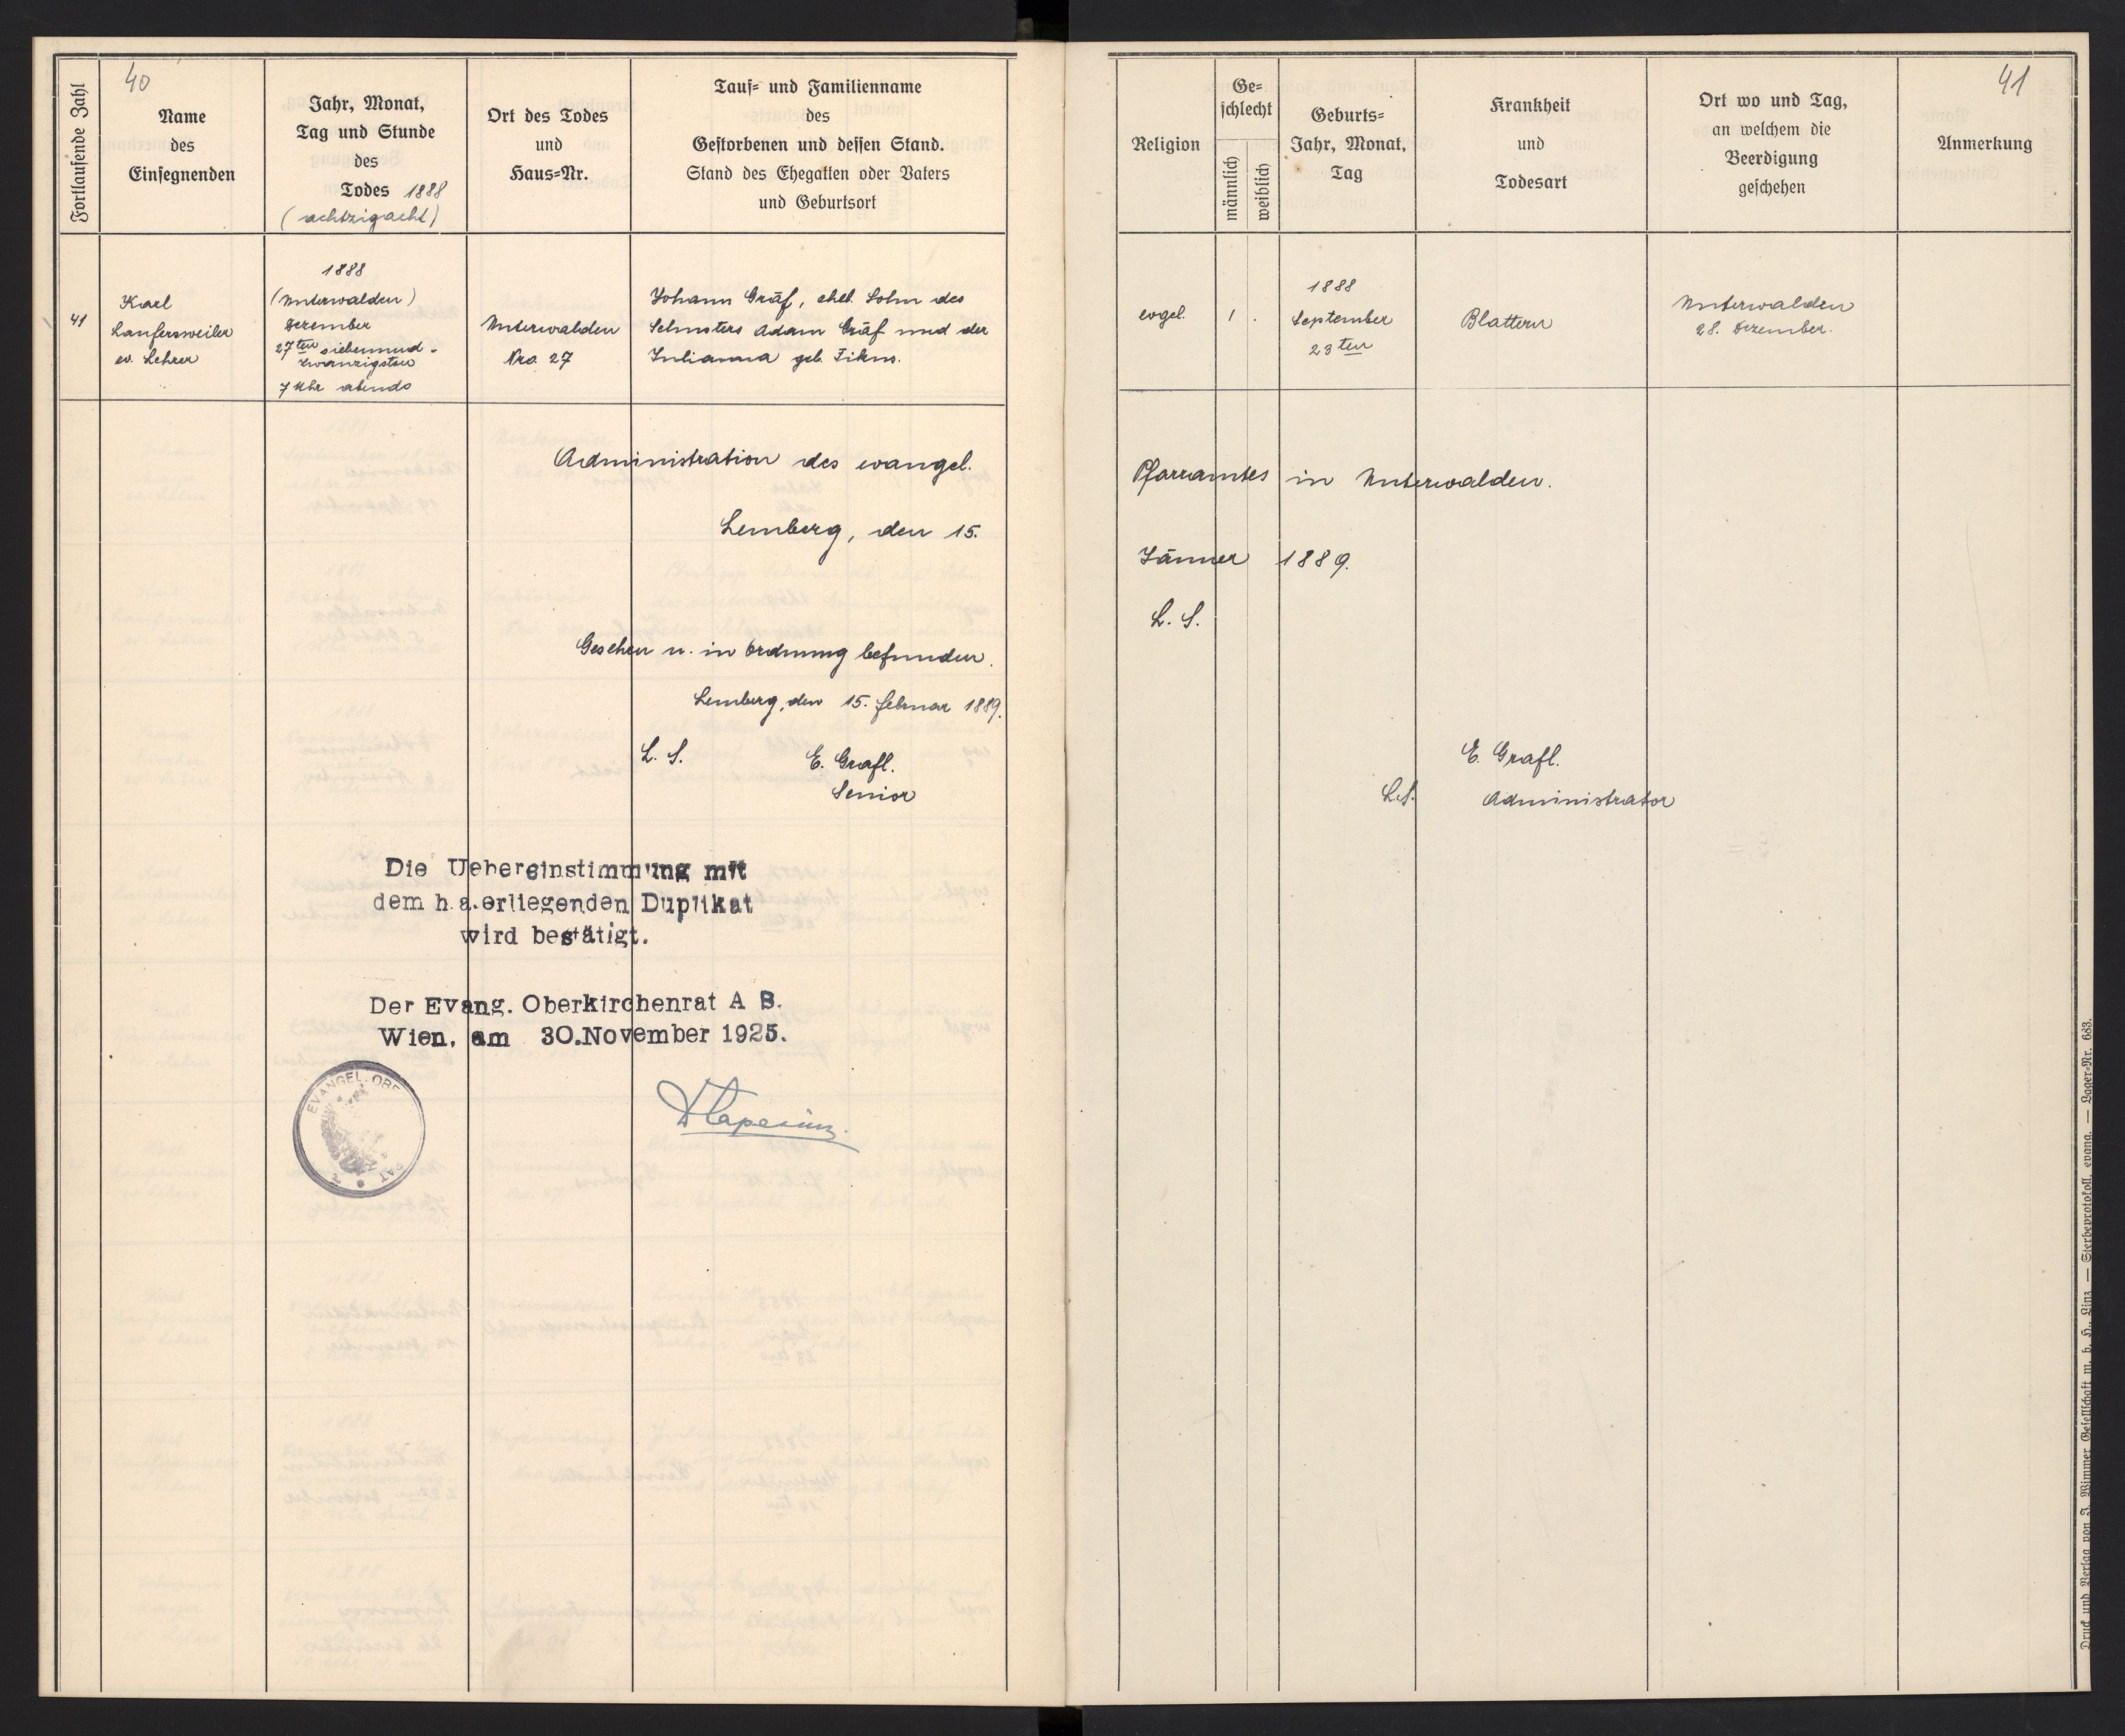 40
Fortlaufende Zahl
Name
des
Einsegnenden
Jahr, Monat,
Tag und Stunde
des
Todes 1888
(achtzigacht)
Ort des Todes
und
Haus-Nr.
Tauf- und Familienname
des
Gestorbenen und dessen Stand.
Stand des Ehegatten oder Vaters
und Geburtsort
41
Karl
Laufersweiler
ev. Lehrer
1888
(Unterwalden)
Dezember
27ten siebenund-
zwanzigsten
7 Uhr abends
Unterwalden
Nro. 27
Johann Gräf, ehel. Sohn des
Schusters Adam Gräf und der
Julianna geb.
Administration des evangel.
Lemberg, den 15.
Gesehen u. in Ordnung befunden.
Lemberg, den 15. Februar 1889.
L. S.
E. Grafl.
Senior
Die Uebereinstimmung mit
dem h.a.erliegenden Duplikat
wird bestätigt.
Der Evang. Oberkirchenrat A B.
Wien, am 30.November 1925.
EVANGEL. OBE
RAT
41
Religion
Ge-
schlecht
männlich
weiblich
Geburts-
Jahr, Monat,
Tag
Krankheit
und
Todesart
Ort wo und Tag,
an welchem die
Beerdigung
geschehen
Anmerkung
evgel.
1 .
1888
September
23ten
Blattern
Unterwalden
28. Dezember.
Pfarramtes in Unterwalden.
Jänner 1889.
L. S.
E. Grafl.
L.S. Administrator
Druck und Verlag von J. Wimmer Gesellschaft m. b. H., Linz — Sterbeprotokoll, evang. — Lager-Nr. 683.